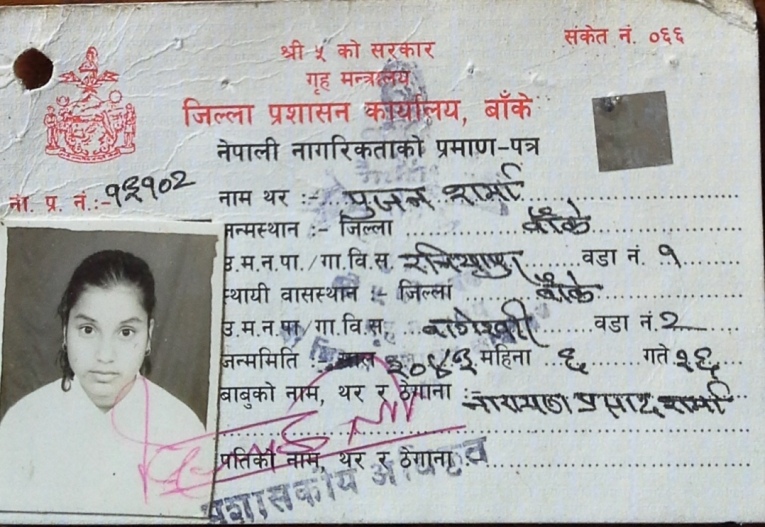 संकेत नं. ०६६
श्री ५ को सरकार
गृह मन्त्रालय
जिल्ला प्रशासन कार्यालय, बाँके
नेपाली नागरिकताको प्रमाण-पत्र
ना. प्र. नं.:-
नाम थर :- पुजन शर्मा
जन्मस्थान :- जिल्ला बाँके
उ.म.न.पा./गा.वि.स. वडा नं. १
स्थायी वासस्थान :- जिल्ला बाँके
उ.म.न.पा/गा.वि.स. वडा नं. २
जन्ममिति :- साल महिना ६ गते
बाबुको नाम, थर र ठेगाना : नारायण प्रसाद शर्मा
पतिको नाम, थर र ठेगाना :
प्रशासकीय अधिकृत